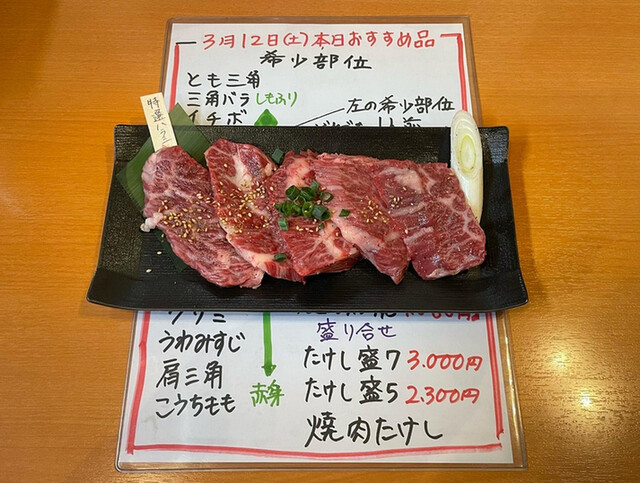 3月12日(土)本日おすすめ品
希少部位
とも三角
三角バラ しもふり
イチボ
左の希少部位
1人前
特選ハラミ
うわみすじ
肩三角
こうちもも
赤身
盛り合せ
たけし盛7 3.000円
たけし盛5 2.300円
焼肉たけし